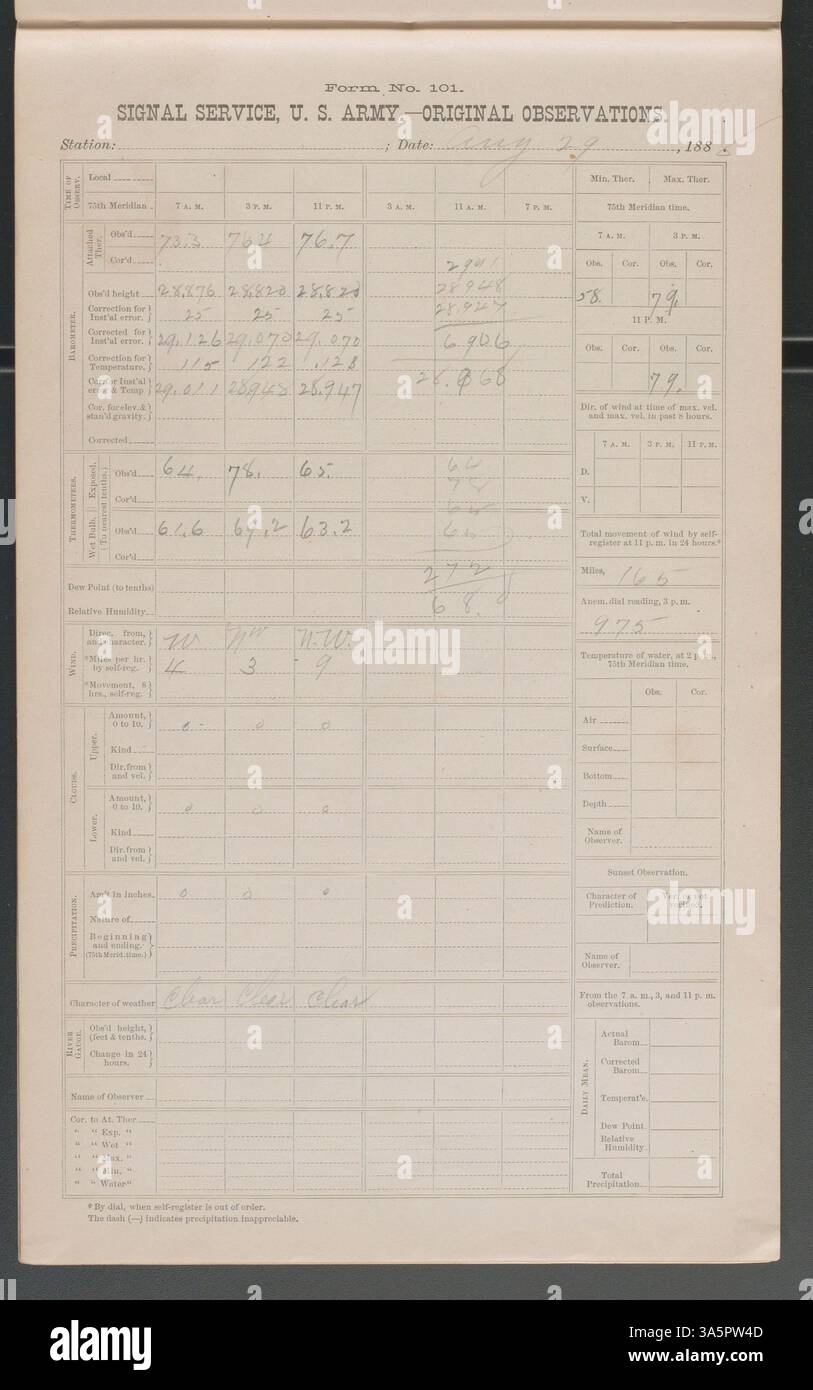 Form No. 101.
SIGNAL SERVICE, U. S. ARMY—ORIGINAL OBSERVATIONS.
Station: ; Date: Aug 29 , 188
TIME OF OBSERV.
Local
75th Meridian
7 A. M. 3 P. M. 11 P. M. 3 A. M. 11 A. M. 7 P. M.
BAROMETER.
Attached Ther.
Obs'd 73.3 76.4 76.7
Cor'd
Obs'd height 28.876 28.820 28.820
Correction for Inst'al error. 25 25 25
Corrected for Inst'al error. 29.126 29.070 29.070
Correction for Temperature. 115 122 .123
Cor. for Inst'al error & Temp 29.011 28.948 28.947
Cor. for elev. & stan'd gravity.
Corrected
2901
28948
28.947
6.906
THERMOMETERS.
Exposed.
Wet Bulb. (To nearest tenths.)
Obs'd 64. 78. 65.
Cor'd
Obs'd 61.6 67.2 63.2
Cor'd
272
68.
Dew Point (to tenths)
Relative Humidity
WIND.
Direc. from, and character. W NW N.W.
*Miles per hr. by self-reg. 4 3 9
*Movement, 8 hrs., self-reg.
CLOUDS.
Upper.
Amount, 0 to 10. 0 0 0
Kind
Dir. from and vel.
Lower.
Amount, 0 to 10. 0 0 0
Kind
Dir. from and vel.
PRECIPITATION.
Am't in inches. 0 0 0
Nature of
Beginning and ending. (75th Merid. time.)
Character of weather clear clear clear
RIVER GAUGE.
Obs'd height, (feet & tenths.
Change in 24 hours.
Name of Observer
Cor. to At. Ther
" " Exp. "
" " Wet "
" " Max. "
" " Min. "
" " Water"
* By dial, when self-register is out of order.
The dash (—) indicates precipitation inappreciable.
Min. Ther. Max. Ther.
75th Meridian time.
7 A. M. 3 P. M.
Obs. Cor. Obs. Cor.
58. 79.
11 P. M.
Obs. Cor. Obs. Cor.
79.
Dir. of wind at time of max. vel. and max. vel. in past 8 hours.
7 A. M. 3 P. M. 11 P. M.
D.
V.
Total movement of wind by self-register at 11 p. m. in 24 hours.*
Miles, 165
Anem. dial reading, 3 p. m.
975
Temperature of water, at 2 p. m., 75th Meridian time.
Obs. Cor.
Air
Surface
Bottom
Depth
Name of Observer.
Sunset Observation.
Character of Prediction. Ver. or not verified.
Name of Observer.
From the 7 a. m., 3, and 11 p. m. observations.
DAILY MEAN.
Actual Barom.
Corrected Barom.
Temperat'e.
Dew Point
Relative Humidity
Total Precipitation
alamy
Image ID: 3A5PW4D
www.alamy.com